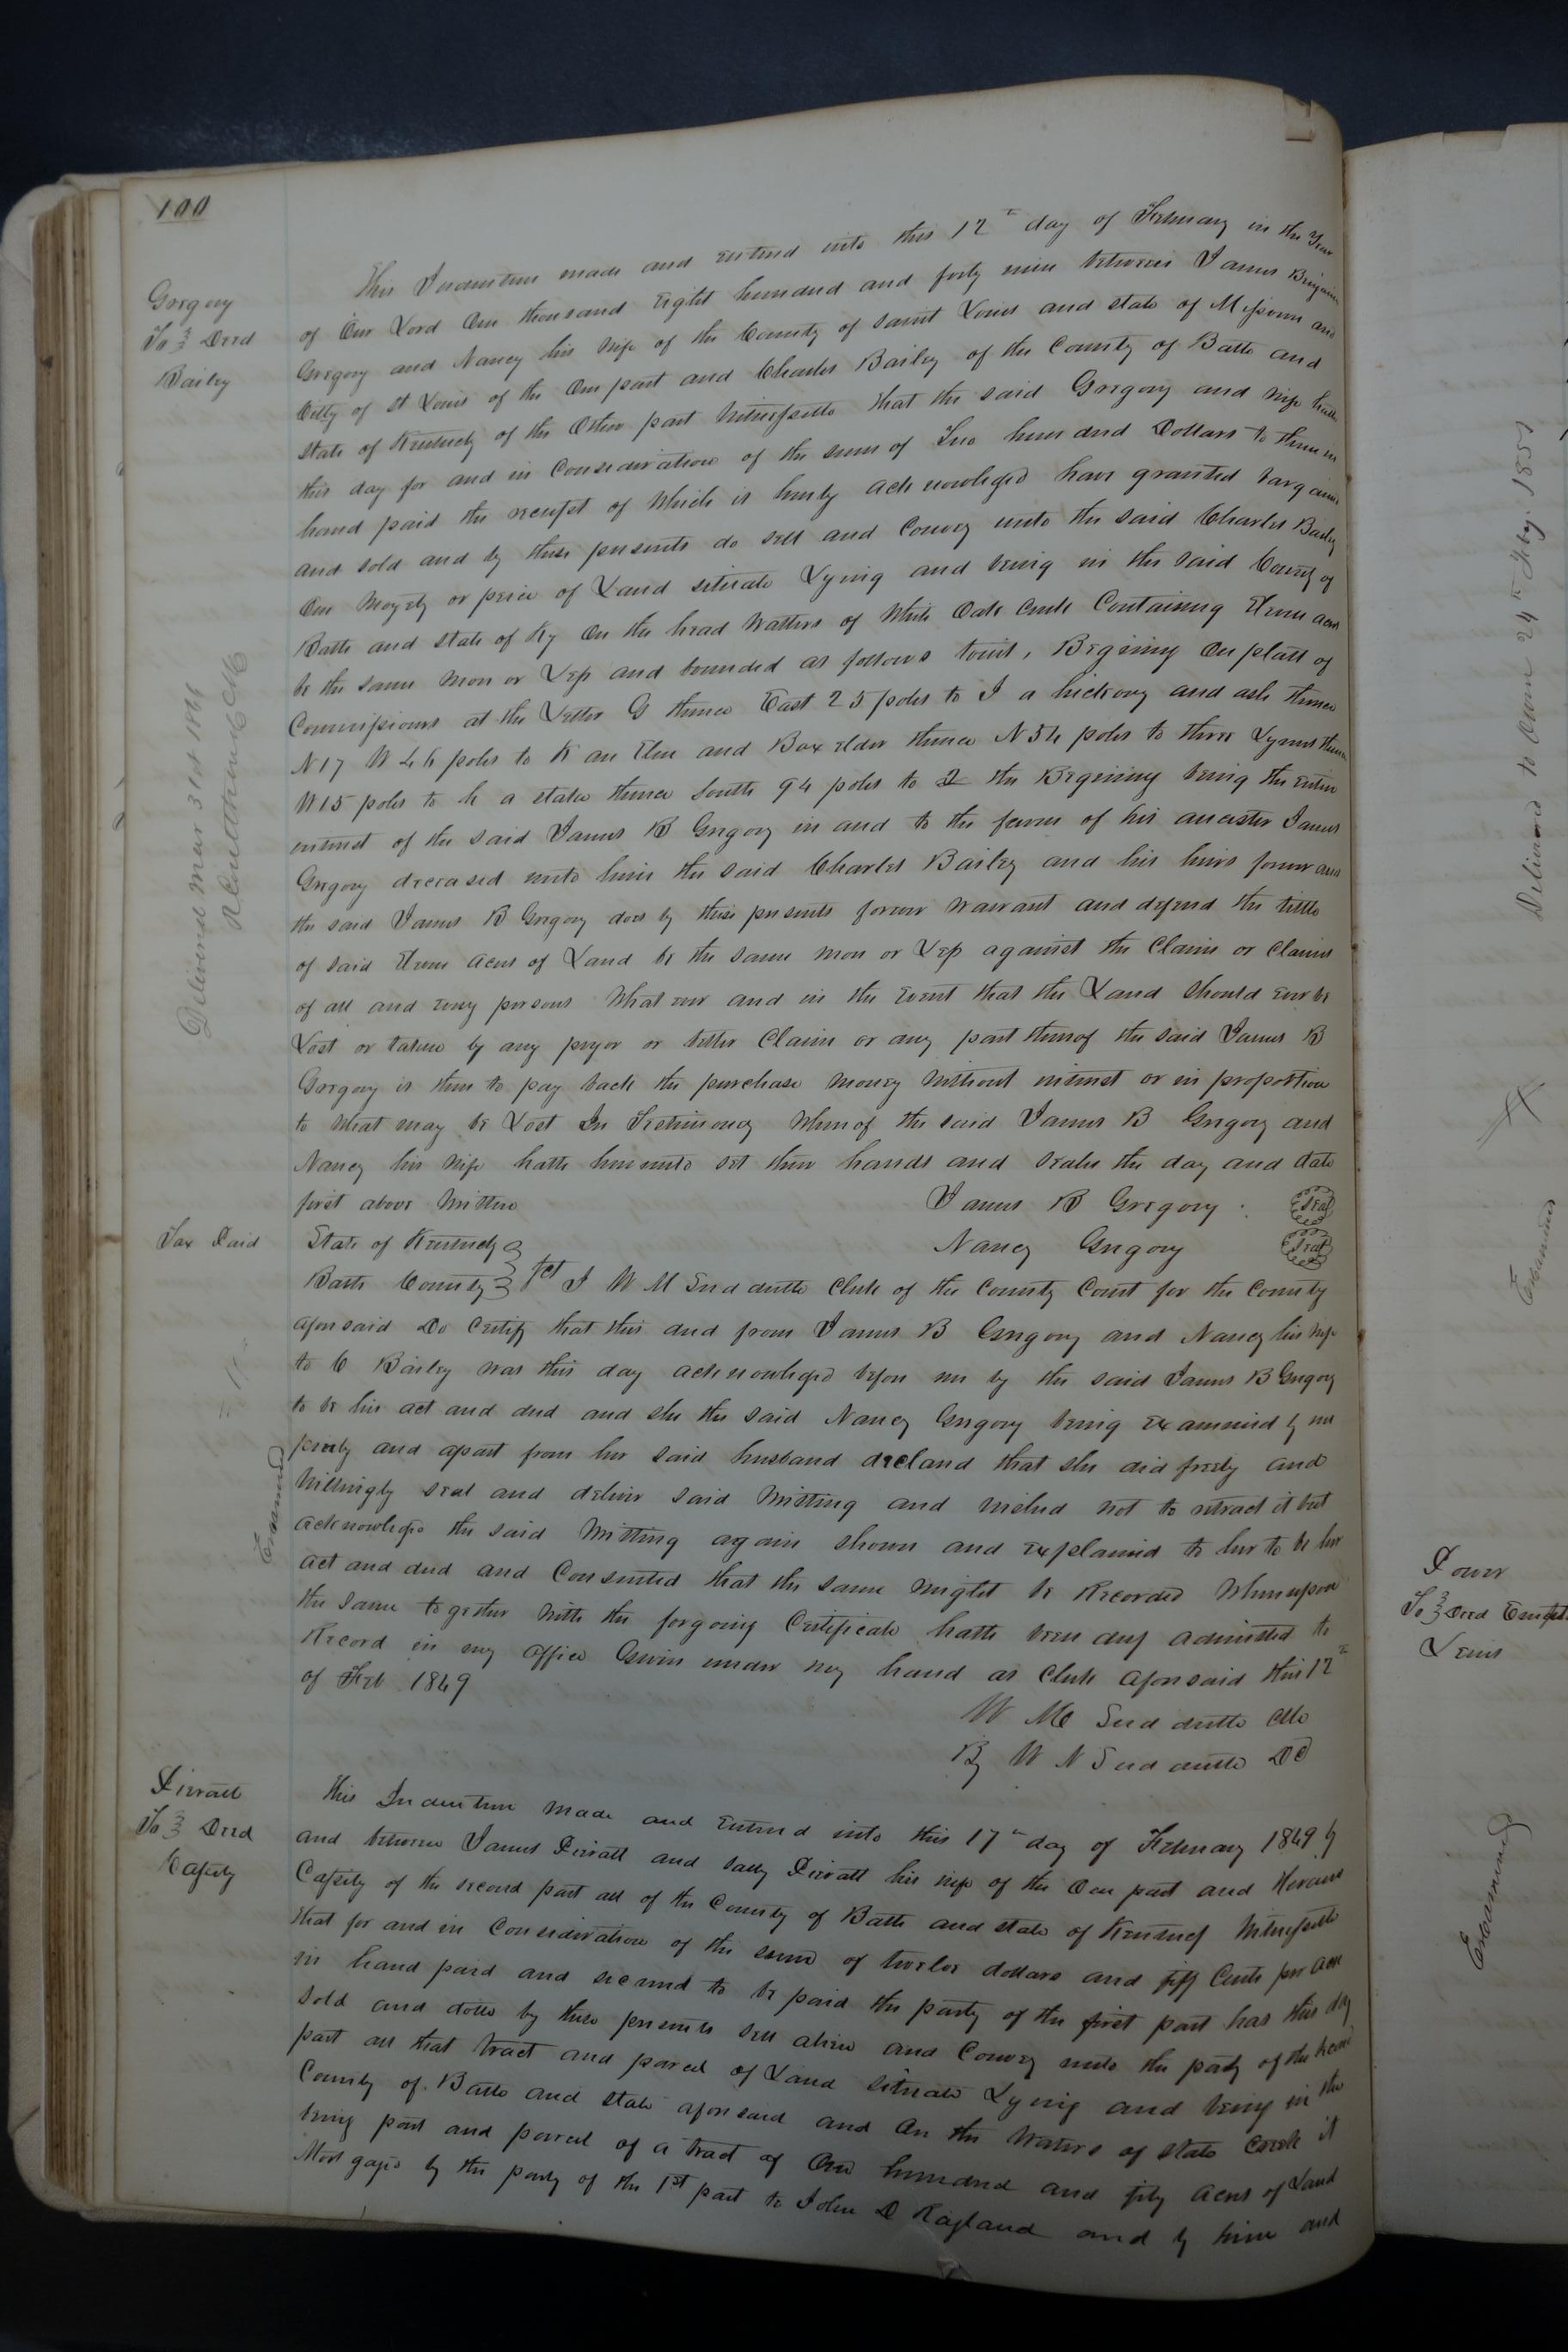 100
Gregory
To } Deed
Bailey
This Indenture made and entered into this 12th day of February in the Year
of Our Lord One thousand Eight hundred and forty nine between James Benjamin
Gregory and Nancy his wife of the County of Saint Louis and state of Missouri and
Citty of St Louis of the One part and Charles Bailey of the County of Bath and
State of Kentucky of the Other part Witnesseth that the said Gregory and wife hath
this day for and in Consideration of the sum of Two hundred Dollars to them in
hand paid the receipt of Which is hearby acknowledged have granted bargained
and sold and by these presents do sell and Convey unto the said Charles Bailey
One Moyety or peice of Land situate Lying and being in the said County of
Bath and state of Ky On the head Watters of White Oak Creek Containing Eleven acres
be the same More or Less and bounded as follows towit, Begining On platt of
Commissioners at the Letter G thence East 25 poles to I a hickrory and ash thence
N 17 W 46 poles to K an Elm and Box elder thence N 54 poles to three Lynns thence
W 15 poles to h a stake thence South 94 poles to the Begining being the entire
interest of the said James B Gregory in and to the farm of his ancester James
Gregory deceased unto him the said Charles Bailey and his heirs forever and
the said James B Gregory does by these presents forever Warrant and defend the tittle
of said Eleven acres of Land be the same more or Less against the Claim or Claims
of all and every persons What ever and in the Event that the Land should ever be
Lost or taken by any pryor or better Claim or any part thereof the said James B
Gregory is then to pay back the purchase money Without interest or in proportion
to What may be Lost In Testimony Whereof the said James B Gregory and
Nancy his Wife hath hereunto set their hands and seales the day and date
first above Written James B Gregory Seal
Tax Paid
State of Kentucky } Nancy Gregory Seal
Bath County } Sct I W M Sudduth Clerk of the County Court for the County
aforesaid Do Certify that this deed from James B Gregory and Nancy his Wife
to C Bailey was this day acknowledged before me by the said James B Gregory
to be his act and deed and she the said Nancy Gregory being examined by me
privly and apart from her said husband declared that she did freely and
Willingly seal and deliver said Writting and wished not to retract it but
acknowledge the said Writting again shown and explained to her to be her
act and deed and Consented that the same might be Recorded Whereupon
the same together With the forgoing Certificate hath been duly admitted to
Record in my office Given under my hand as Clerk aforesaid this 12th
of Feb 1849
W M Sudduth Clk
By W N Sudduth DC
Delivered Mar 31st 1866
Examined
Pirratt
To } Deed
Cassity
This Indenture Made and Entered into this 17th day of February 1849 by
and between James Pirratt and Sally Pirratt his wife of the One part and
Cassity of the second part all of the County of Bath and state of Kentucky Witnesseth
that for and in Consideration of the sum of twelve dollars and fifty Cents per acre
in hand paid and secured to be paid the party of the first part has this day
sold and doth by these presents sell alien and Convey unto the party of the second
part all that tract and parcel of Land situate Lying and being in the
County of Bath and state aforesaid and On the Waters of State Creek it
being part and parcel of a tract of One hundred and fifty acres of Land
Mortgaged by the party of the 1st part to John D Ragland and by him and
Delivered to Owen 24th Feby. 1851
Examined
Power
To } Deed
Lewis
Examined